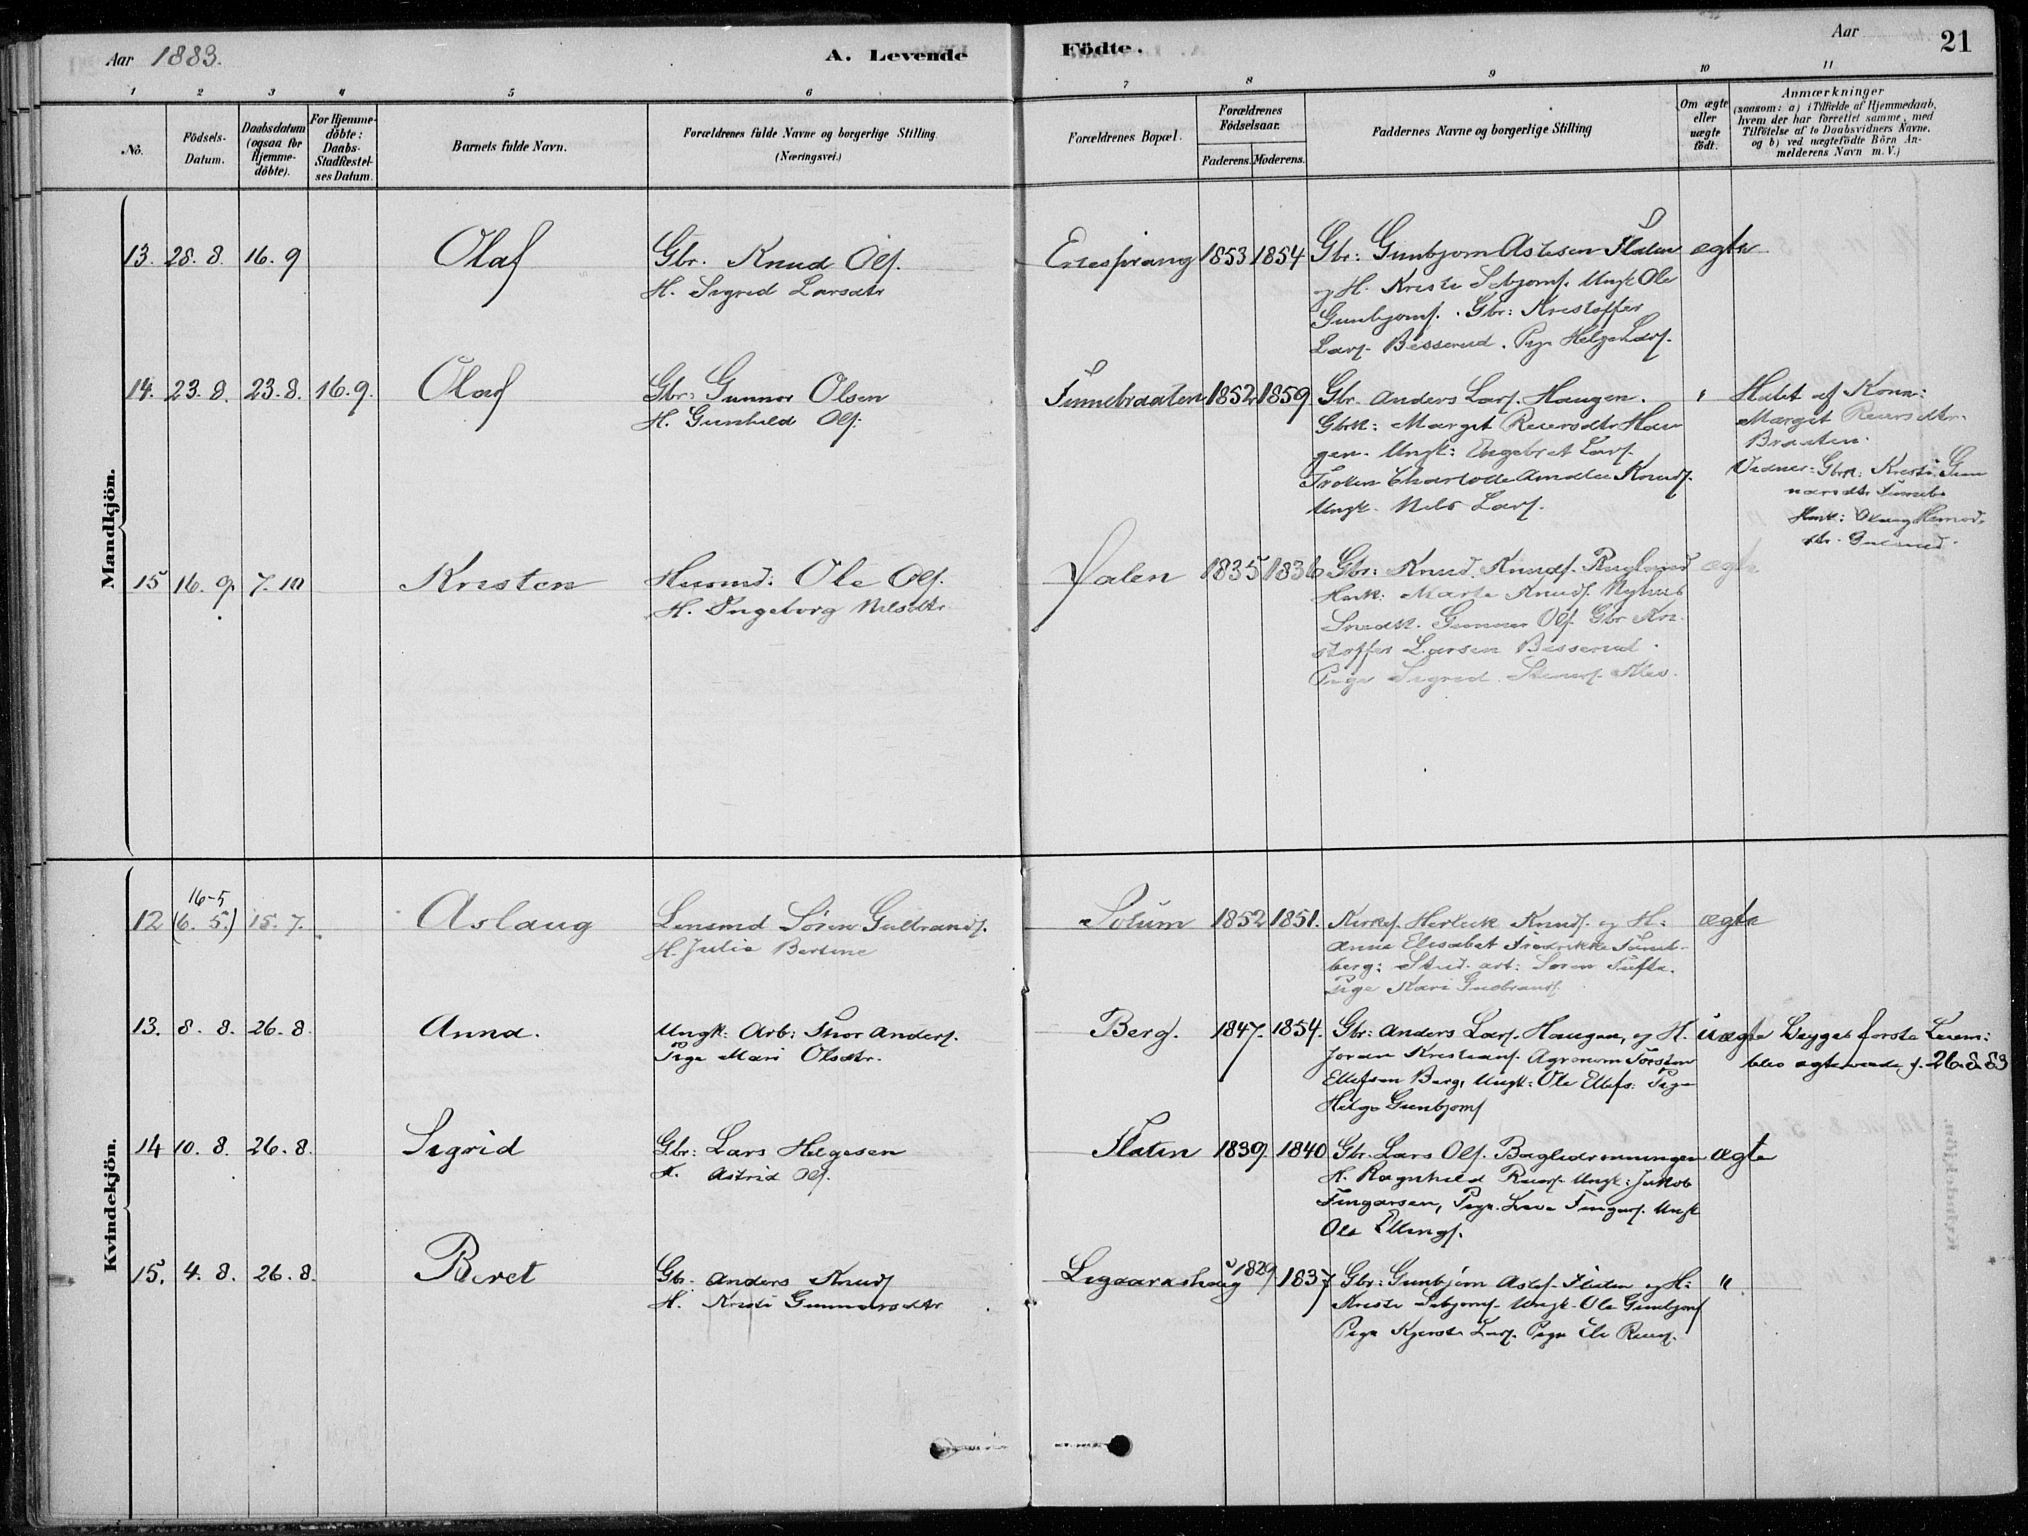 Aar 1883.
A. Levende
Födte.
Aar
21
1 2 3 4 5 6 7 8 9 10 11
No.
Födsels-
Datum.
Daabsdatum
(ogsaa for
Hjemme-
döbte).
For Hjemme-
döbte:
Daabs-
Stadfæstel-
ses Datum.
Barnets fulde Navn.
Forældrenes fulde Navne og borgerlige Stilling
(Næringsvei.)
Forældrenes Bopæl.
Forældrenes
Födselsaar.
Faderens. Moderens.
Faddernes Navne og borgerlige Stilling
Om ægte
eller
uægte
födt.
Anmærkninger
(saasom: a) i Tilfælde af Hjemmedaab,
hvem der har forrettet samme, med
Tilföielse af to Daabsvidners Navne,
og b) ved uægtefödte Börn An-
melderens Navn m. V.)
Mandkjön.
13. 28. 8. 16. 9 Olaf
Gbr. Knud Ols.
H. Sigrid Larsdtr
1853 1854
Gbr: Gunbjorn Astesen Flaten
og H. Kristi Sebjorns. Ungk Ole
Gunbjorns. Gbr: Kristoffer
Lars. Besserud. Pige Helge Lars.
ægte
14. 23. 8. 23. 8. 16. 9. Olaf
Gbr: Gunnar Olsen
H. Gunhild Ols.
Finnebraaten 1852 1859
Gbr. Anders Lars. Haugen.
Gbrk: Margit Reiersdtr Hau
gen. Ungk: Engebret Lars.
Frøken Charlotte Amalie Knuds.
Ungk. Nils Lars.
Margit Reiersdtr.
Braaten.
Vidner: Gbrk: Kristi Gun
narsdtr
15 16. 9. 7. 10 Kristen
Husmd. Ole Ols.
H. Ingeborg Nilsdtr.
1835 1836
Gbr: Knud Knuds.
Marte Knuds. Nyhus
Snedk. Gunnar Ols. Gbr Kri
stoffer Larsen Besserud.
Pige Sigrid
ægte
Kvindekjön.
16-5
12 (6. 5.) 15. 7. Aslaug
Lensmd Sören Gulbrands.
H. Julie Bertine
Solum 1852 1851.
Kirkes. Herleik Knuds. og H:
Anna Elisabet Fredrikke
berg: Stud. art: Soren Tufte.
Pige Kari Gulbrands.
ægte
13. 8. 8. 26. 8. Anna.
Ungk: Arb: Thor Anders.
Pige Mari Olsdtr.
Berg. 1847. 1854.
Gbr: Anders Lars. Haugen, og H.
Joran Kristians. Agronom Torsten
Ellefsen Berg, Ungk: Ole Ellefs: Pige
Helge Gunbjorns
uægte
Begges første Leierm:
blev ægteviede d. 26-8-83
14 10. 8. 26. 8. Sigrid
Gbr: Lars Helgesen
H. Astrid Ols.
Flaten 1839 1840
Gbr. Lars Ols.
H. Ragnhild Reiers. Ungk: Jakob
Fingarsen, Pige Fingars. Ungk
Ole Ellings.
ægte
15. 4. 8. 26. 8. Beret
Gb. Anders Knuds
H. Kristi Gunnarsdtr
1829 1837
Gbr: Gunbjörn Astes. Flaten og H:
Kristi Sebjorns. Ungk. Ole Gunbjorns
Pige Kjersti Lars. Pige Eli Reiers.
"